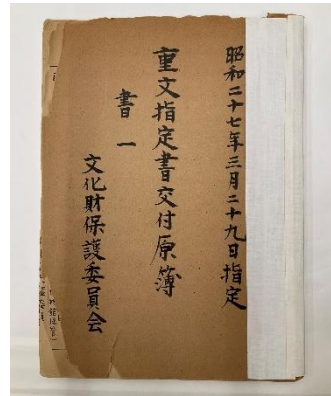 昭和二十七年三月二十九日指定
重文指定書交付原簿
書一
文化財保護委員会